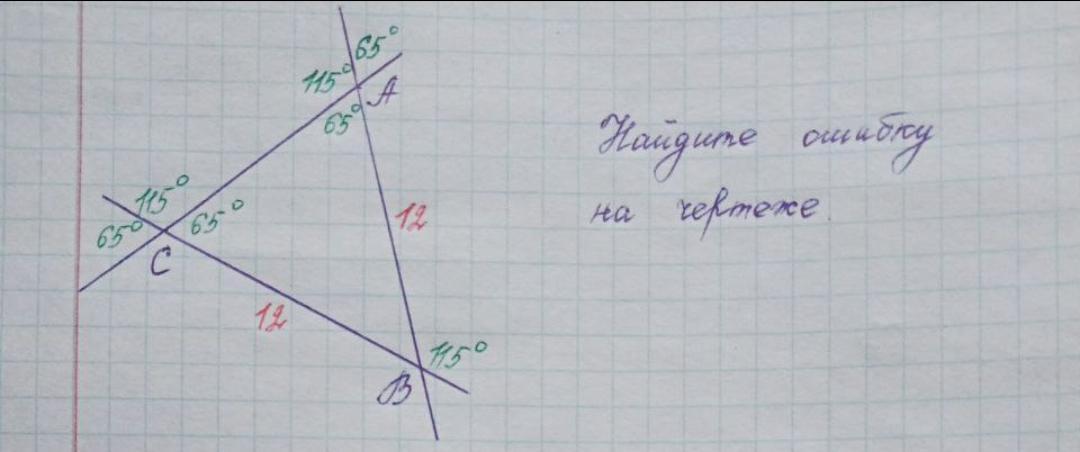 65°
115°
A
65°
Найдите ошибку
на чертеже.
115°
65°
65°
12
C
12
115°
B